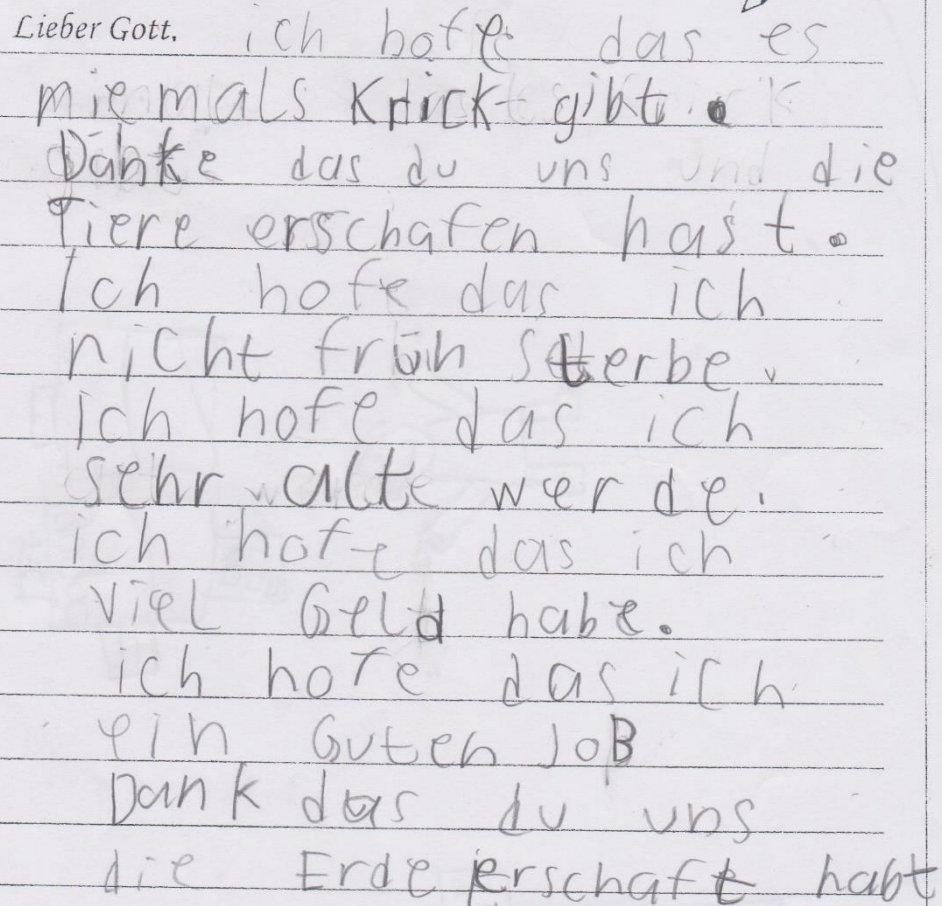 Lieber Gott, ich hofe das es
miemals Krickt gibt.
Danke das du uns und die
Tiere erschafen hast.
Ich hofe das ich
nicht früh sterbe.
ich hofe das ich
sehr alte werde.
ich hofe das ich
viel Geld habe.
ich hofe das ich
ein Guten JoB
Dank das du uns
die Erde erschaft habt